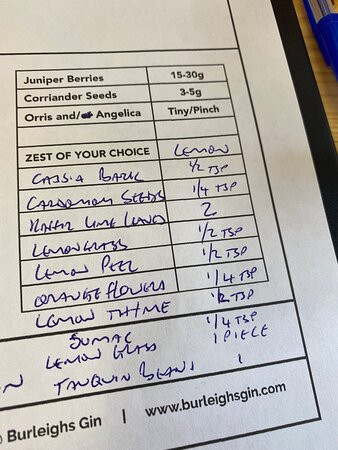 Juniper Berries 15-30g
Corriander Seeds 3-5g
Orris and/or Angelica Tiny/Pinch
ZEST OF YOUR CHOICE LEMON
CASSIA BARK 1/2 TSP
CARDOMOM SEEDS 1/4 TSP
KAFFIR LIME LEAVES 2
LEMONGRASS 1/2 TSP
LEMON PEEL 1/2 TSP
ORANGE FLOWERS 1/4 TSP
LEMON THYME 1/2 TSP
SUMAC 1/4 TSP
LEMON GRASS 1 PIECE
TANQUIN BEANS 1
Burleighs Gin | www.burleighsgin.com